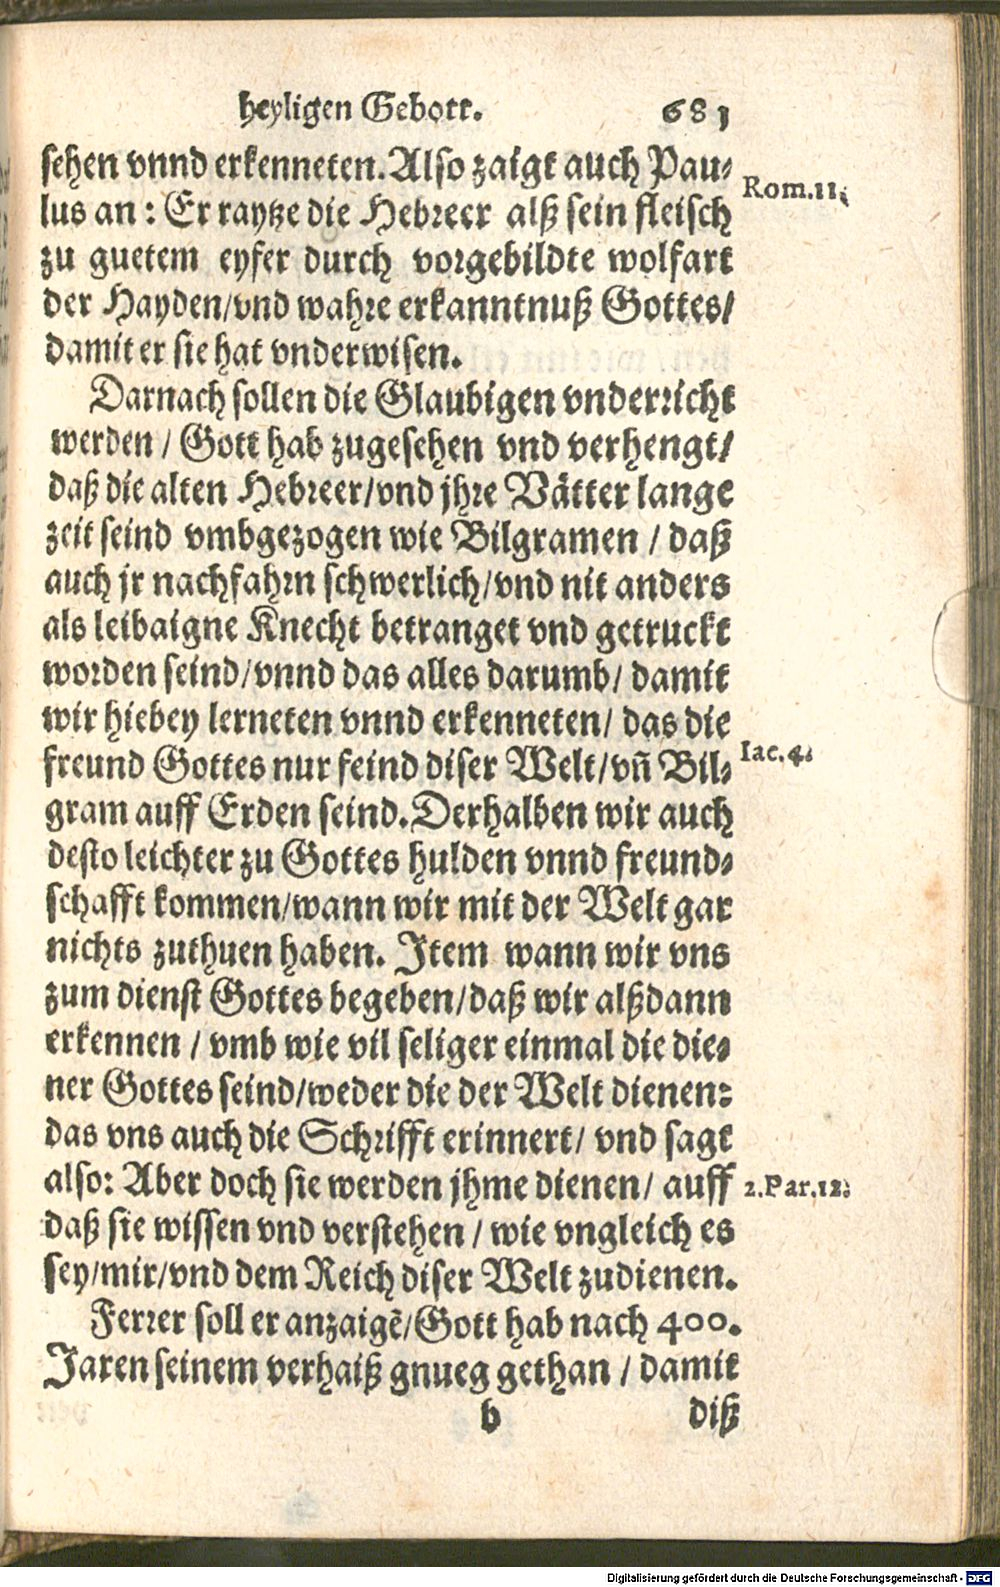 heyligen Gebott. 681
sehen vnnd erkenneten. Also zaigt auch Pau-
lus an: Er raytze die Hebreer alß sein fleisch
Rom.11.
zu guetem eyfer durch vorgebildte wolfart
der Hayden/vnd wahre erkanntnuß Gottes/
damit er sie hat vnderwisen.
Darnach sollen die Glaubigen vnderricht
werden / Gott hab zugesehen vnd verhengt/
daß die alten Hebreer/vnd jhre Vätter lange
zeit seind vmbgezogen wie Bilgramen / daß
auch jr nachfahrn schwerlich/vnd nit anders
als leibaigne Knecht betranget vnd getruckt
worden seind/vnnd das alles darumb/ damit
wir hiebey lerneten vnnd erkenneten/ das die
freund Gottes nur feind diser Welt/vn̄ Bil-
Iac.4.
gram auff Erden seind. Derhalben wir auch
desto leichter zu Gottes hulden vnnd freund-
schafft kommen/wann wir mit der Welt gar
nichts zuthuen haben. Item wann wir vns
zum dienst Gottes begeben/daß wir alßdann
erkennen / vmb wie vil seliger einmal die die-
ner Gottes seind/weder die der Welt dienen:
das vns auch die Schrifft erinnert/ vnd sagt
also: Aber doch sie werden jhme dienen/ auff
2.Par.12.
daß sie wissen vnd verstehen / wie vngleich es
sey/mir/vnd dem Reich diser Welt zudienen.
Ferrer soll er anzaigē/Gott hab nach 400.
Jaren seinem verhaiß gnueg gethan / damit
v diß
Digitalisierung gefördert durch die Deutsche Forschungsgemeinschaft - DFG